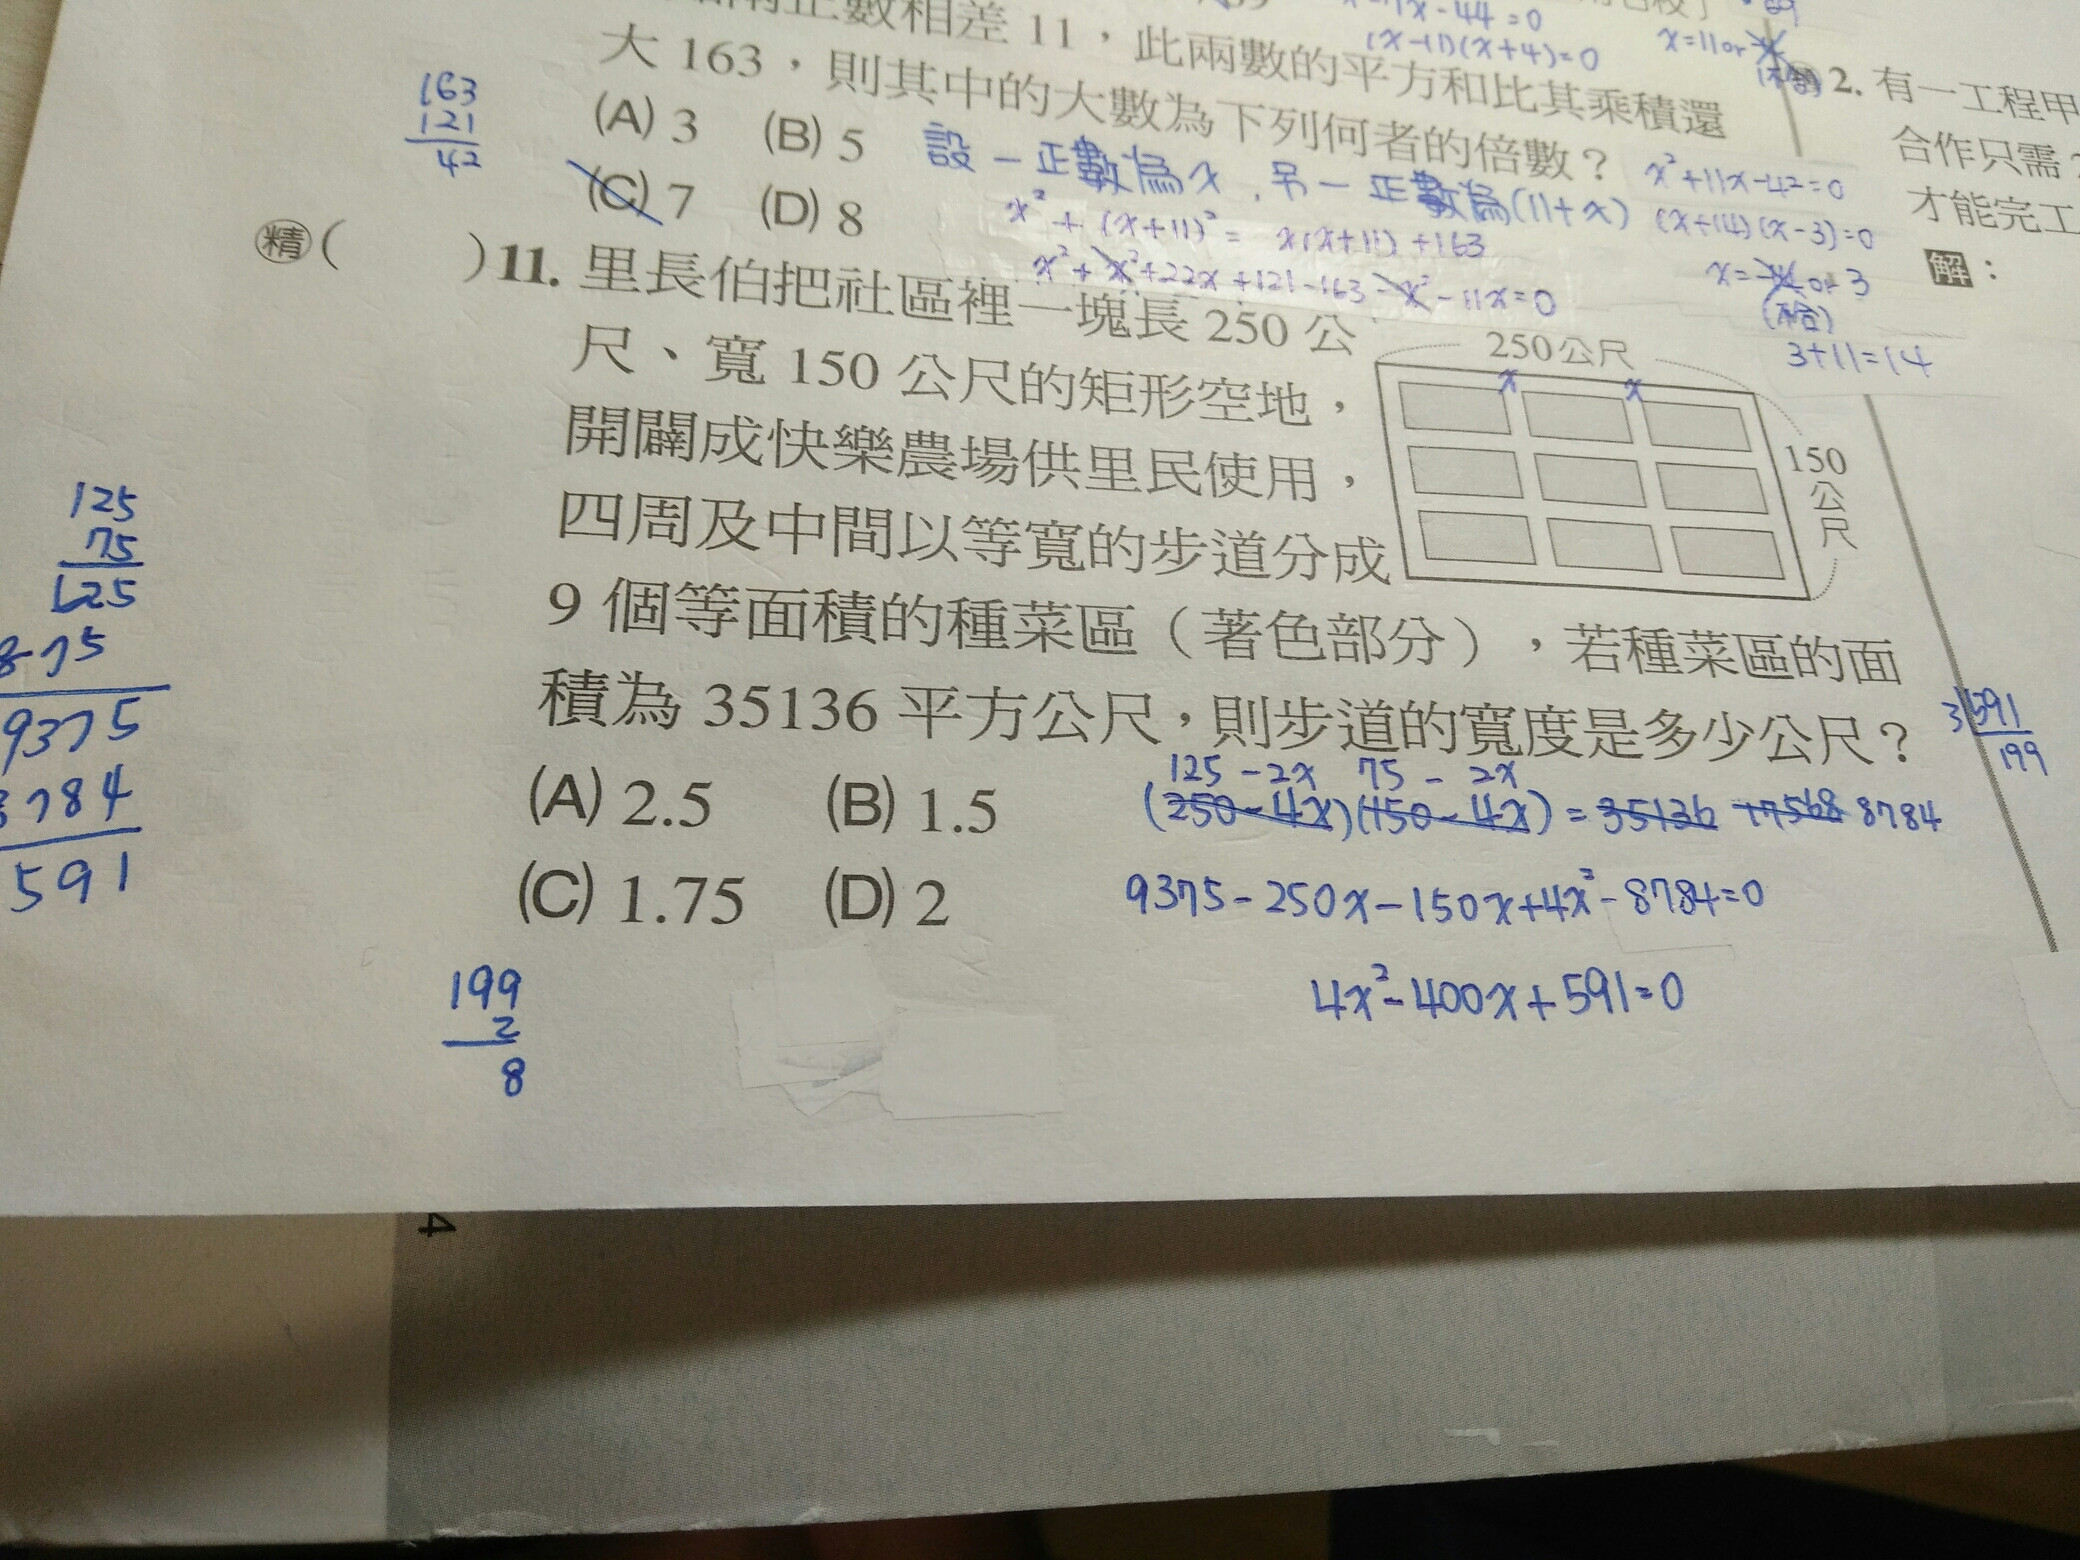 正數相差 11，此兩數的平方和比其乘積還
大 163，則其中的大數為下列何者的倍數？
(A) 3 (B) 5
(C) 7 (D) 8
x-44=0
(x-11)(x+4)=0
x=11or
163
121
42
設一正數為x，另一正數為(11+x)
x²+(x+11)²=x(x+11)+163
x²+x²+22x+121-163-x²-11x=0
x²+11x-42=0
(x+14)(x-3)=0
x=-14 or 3
(不合)
3+11=14
2. 有一工程甲
合作只需
才能完工
解：
精( )11. 里長伯把社區裡一塊長 250 公
尺、寬 150 公尺的矩形空地，
開闢成快樂農場供里民使用，
四周及中間以等寬的步道分成
9 個等面積的種菜區（著色部分），若種菜區的面
積為 35136 平方公尺，則步道的寬度是多少公尺？
(A) 2.5 (B) 1.5
(C) 1.75 (D) 2
250公尺
x x
150公尺
125-2x 75-2x
(250-4x)(150-4x)=35136 17568 8784
9375-250x-150x+4x²-8784=0
4x²-400x+591=0
125
75
625
875
9375
8784
591
3 591
199
199
2
8
4